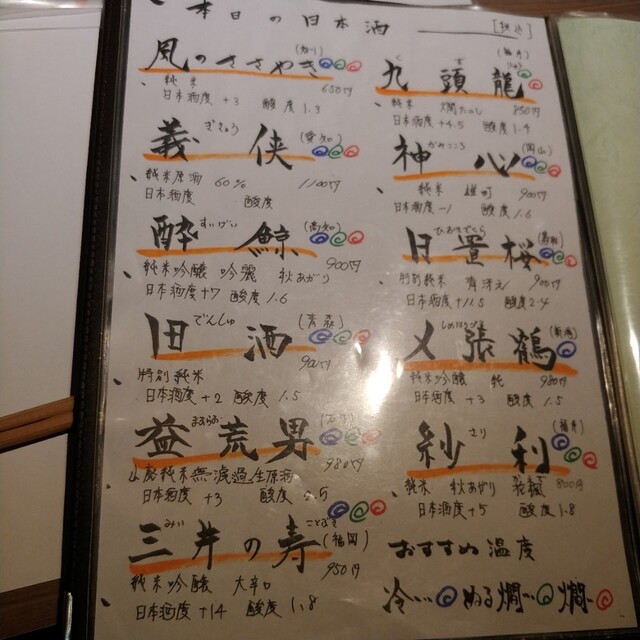 本日の日本酒
[税込]
風のささやき
純米 650円
日本酒度 +3 酸度 1.3
ぎきょう
義侠 (愛知)
純米原酒 60% 1100円
日本酒度 酸度
すいげい
酔鯨 (高知)
純米吟醸 吟麗 秋あがり 900円
日本酒度 +7 酸度 1.6
でんしゅ
田酒 (青森)
特別純米 900円
日本酒度 +2 酸度 1.5
ますらお
益荒男 (石川)
山廃純米無濾過生原酒 980円
日本酒度 +3 酸度 2.5
みい ことぶき
三井の寿 (福岡)
純米吟醸 大辛口 950円
日本酒度 +14 酸度 1.8
九頭龍 (福井)
純米 燗たのし 850円
日本酒度 +4.5 酸度 1.4
かみこころ
神心 (岡山)
純米 雄町 900円
日本酒度 -1 酸度 1.6
ひおきざくら
日置桜 (鳥取)
特別純米 青冴え 900円
日本酒度 +11.5 酸度 2.4
しめはりづる
〆張鶴 (新潟)
純米吟醸 純 980円
日本酒度 +3 酸度 1.5
さり
紗利 (福井)
純米 秋あがり 800円
日本酒度 +5 酸度 1.8
おすすめ温度
冷… ぬる燗… 燗…